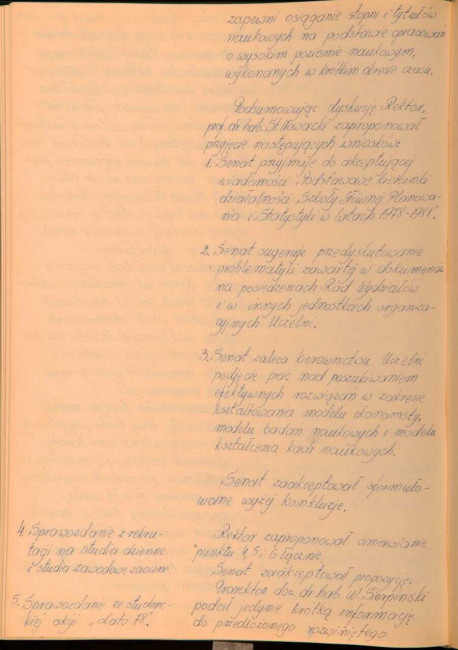 zapewni osiąganie stopni i tytułów
naukowych na podstawie opracowań
o wysokim poziomie naukowym,
wykonanych w krótkim okresie czasu.
Podsumowując dyskusję Rektor,
prof. dr hab. St. Nowacki zaproponował
przyjęcie następujących wniosków:
1. Senat przyjmuje do akceptującej
wiadomości "Podstawowe kierunki
działalności Szkoły Głównej Planowa-
nia i Statystyki w latach 1978-1981".
2. Senat sugeruje przedyskutowanie
problematyki zawartej w dokumencie
na posiedzeniach Rad Wydziałów
i w innych jednostkach organiza-
cyjnych Uczelni.
3. Senat zaleca kierownictwu Uczelni
podjęcie prac nad poszukiwaniem
efektywnych rozwiązań w zakresie
kształtowania modelu ekonomisty,
modelu badań naukowych i modelu
kształcenia kadr naukowych.
Senat zaakceptował sformuło-
wane wyżej konkluzje.
4. Sprawozdanie z rekru-
tacji na studia dzienne
i studia zawodowe zaoczne.
Rektor zaproponował omawianie
punktu 4, 5, 6 łącznie.
Senat zaakceptował propozycję.
5. Sprawozdanie ze studenc-
kiej akcji "Lato 78".
Prorektor doc. dr hab. W. Sierpiński
podał jedynie krótką informację
do przedłożonego rozwiniętego